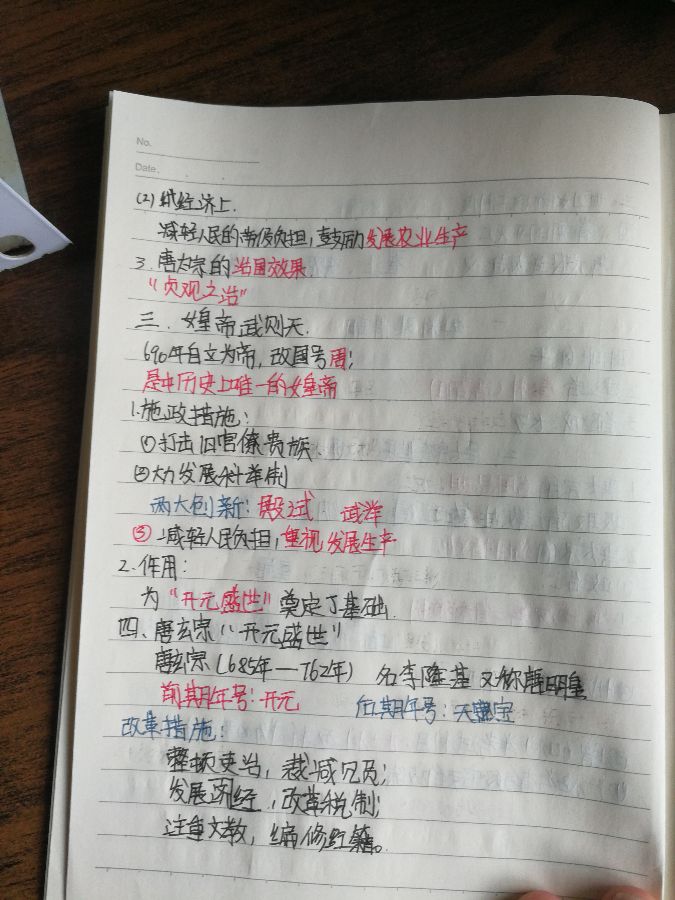 No.
Date.
(2) 经济上.
减轻人民的劳役负担，鼓励发展农业生产
3. 唐太宗的治国效果
“贞观之治”
三、女皇帝武则天.
690年自立为帝，改国号周;
是中历史上唯一的女皇帝
1.施政措施:
①打击旧官僚贵族.
②大力发展科举制
两大创新: 殿试 武举
③减轻人民负担，重视发展生产
2.作用:
为“开元盛世”奠定了基础.
四、唐玄宗“开元盛世”
唐玄宗(685年—762年) 名李隆基 又称唐明皇
前期年号:开元 后期年号:天宝
改革措施:
整顿吏治，裁减冗员;
发展经，改革税制;
注重文教，编修籍。